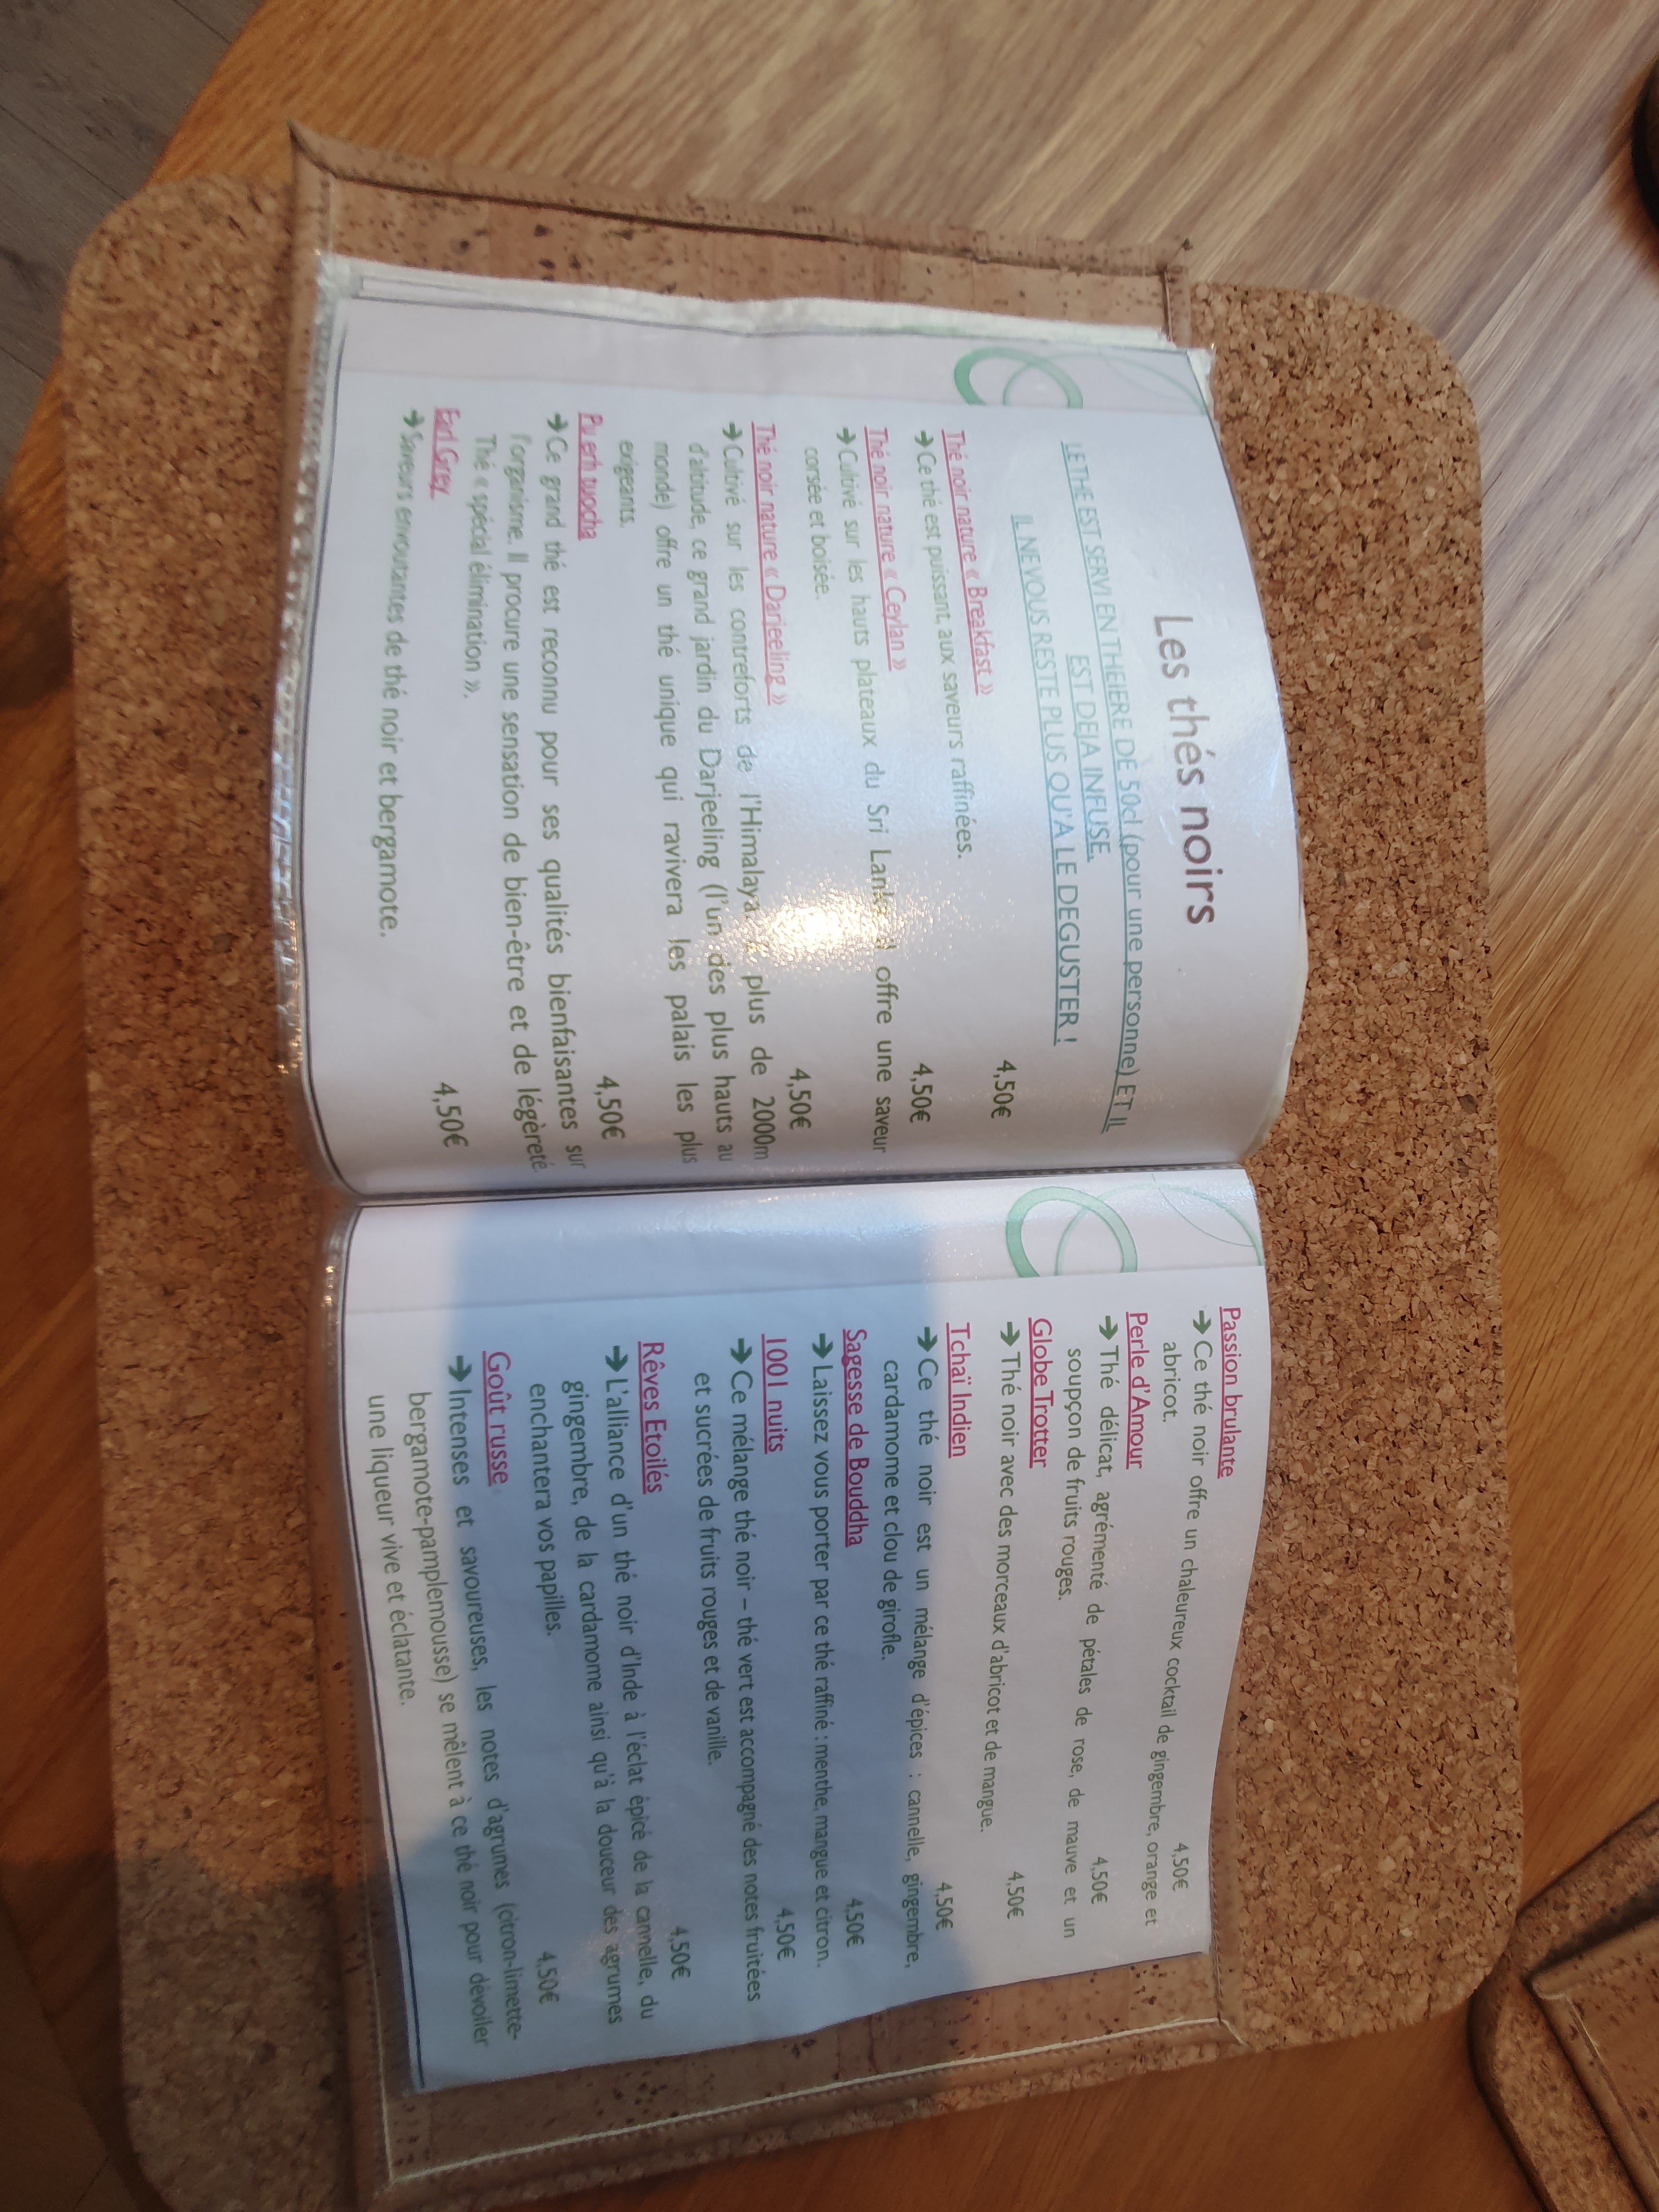 Les thés noirs
LE THE EST SERVI EN THEIERE DE 50cl (pour une personne) ET IL
EST DEJA INFUSE.
IL NE VOUS RESTE PLUS QU'A LE DEGUSTER !
Thé noir nature « Breakfast » 4,50€
➔ Ce thé est puissant, aux saveurs raffinées.
Thé noir nature « Ceylan » 4,50€
➔ Cultivé sur les hauts plateaux du Sri Lanka offre une saveur
corsée et boisée.
Thé noir nature « Darjeeling » 4,50€
➔ Cultivé sur les contreforts de l'Himalaya plus de 2000m
d'altitude, ce grand jardin du Darjeeling (l'un des plus hauts au
monde) offre un thé unique qui ravivera les palais les plus
exigeants.
Pu erh tuocha 4,50€
➔ Ce grand thé est reconnu pour ses qualités bienfaisantes sur
l'organisme. Il procure une sensation de bien-être et de légèreté.
Thé « spécial élimination ».
Earl Grey 4,50€
➔ Saveurs envoutantes de thé noir et bergamote.
Passion brulante 4,50€
➔ Ce thé noir offre un chaleureux cocktail de gingembre, orange et
abricot.
Perle d'Amour 4,50€
➔ Thé délicat, agrémenté de pétales de rose, de mauve et un
soupçon de fruits rouges.
Globe Trotter 4,50€
➔ Thé noir avec des morceaux d'abricot et de mangue.
Tchaï Indien 4,50€
➔ Ce thé noir est un mélange d'épices : cannelle, gingembre,
cardamome et clou de girofle.
Sagesse de Bouddha 4,50€
➔ Laissez vous porter par ce thé raffiné : menthe, mangue et citron.
1001 nuits 4,50€
➔ Ce mélange thé noir – thé vert est accompagné des notes fruitées
et sucrées de fruits rouges et de vanille.
Rêves Etoilés 4,50€
➔ L'alliance d'un thé noir d'Inde à l'éclat épicé de la cannelle, du
gingembre, de la cardamome ainsi qu'à la douceur des agrumes
enchantera vos papilles.
Goût russe 4,50€
➔ Intenses et savoureuses, les notes d'agrumes (citron-limette-
bergamote-pamplemousse) se mêlent à ce thé noir pour dévoiler
une liqueur vive et éclatante.